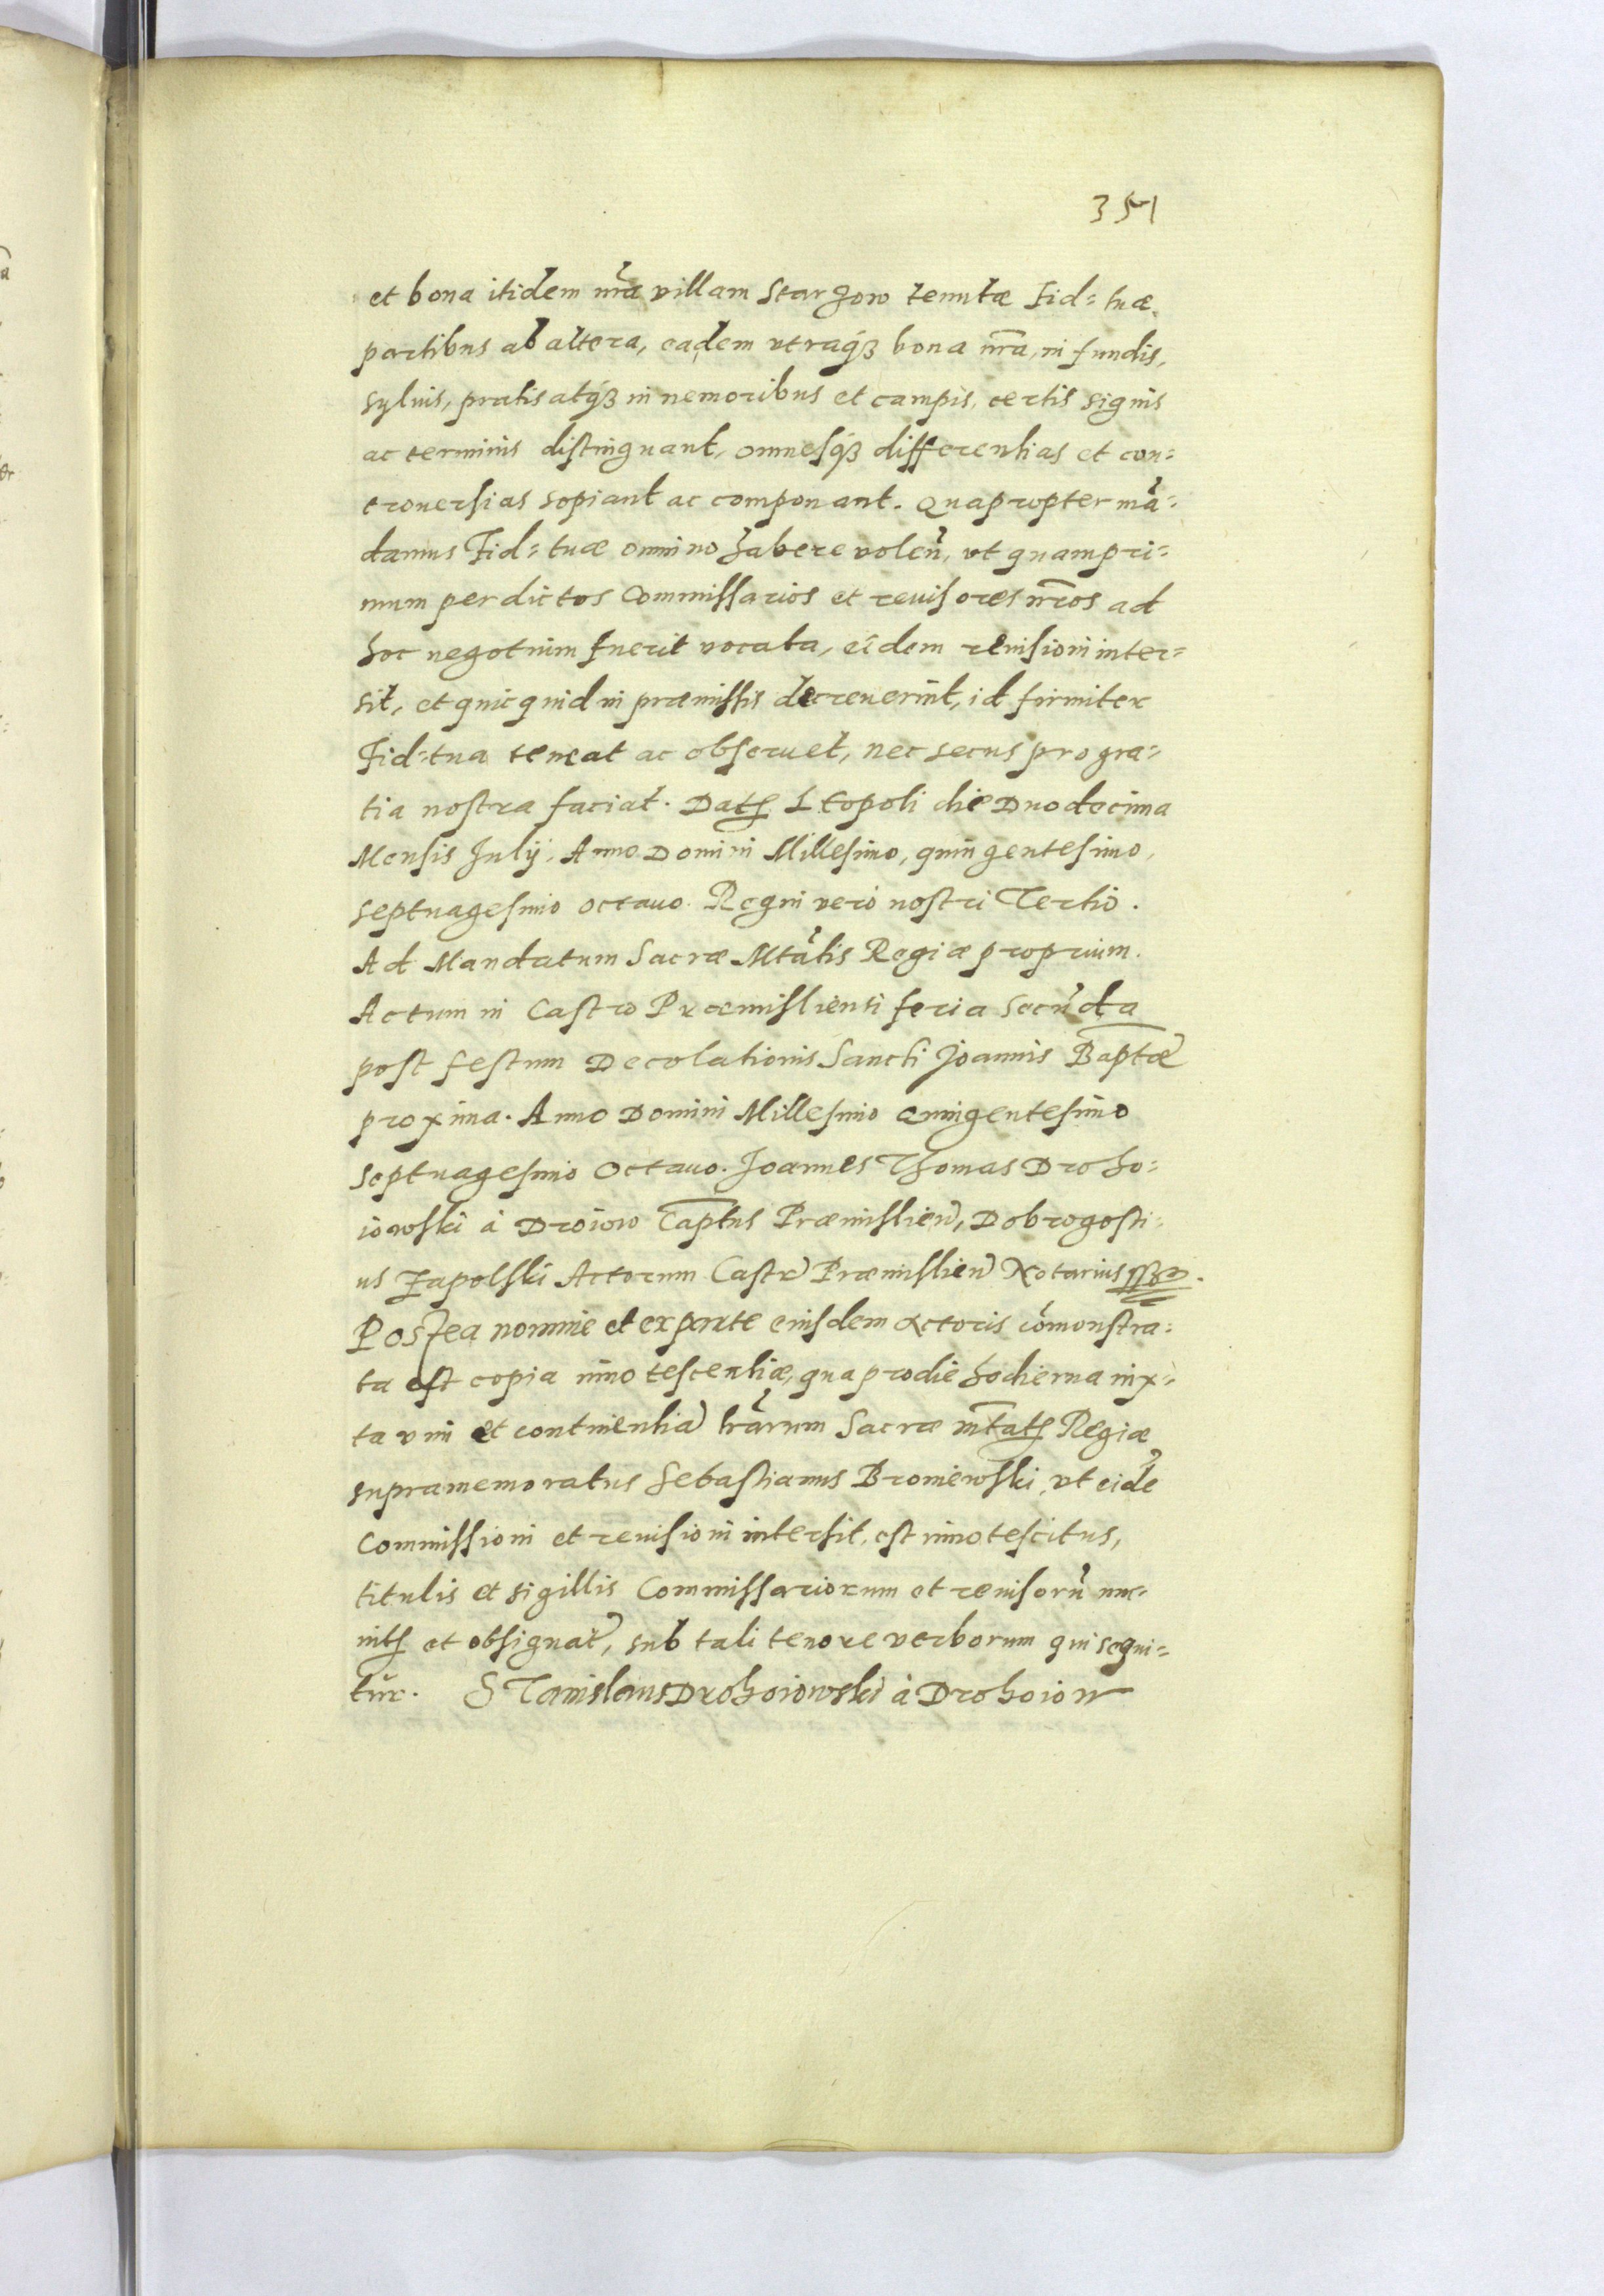 351
et bona itidem nr̃a villam Starzow tenutæ Fid= tuæ
partibus ab altera, eadem vtraq́ꝫ bona nr̃a, in fundis,
syluis, pratis atq́ꝫ in nemoribus et campis, certis signis
ac terminis distinguant, omnesq́ꝫ differentias et con=
trouersias sopiant ac componant. Quapropter mã=
damus Fid= tuæ omnino habere volen̄, vt quampri=
mum perdictos Commissarios et reuisores nr̃os ad
hoc negotium fuerit vocata, eidem reuisioni inter=
sit, et quicquid in præmissis decreuerint, id firmiter
Fid=tua teneat ac obseruet, nec secus pro gra=
tia nostra faciat. Datꝭ Leopoli die Duodecima
Mensis Julij, Anno Domini Millesimo, quingentesimo,
septuagesimo octauo. Regni vero nostri Tertio.
Ad Mandatum Sacræ Mtãtis Regiæ proprium.
Actum in Castro Præmisliensi feria secũda
post festum Decolationis Sancti Joannis Baptæ
proxima. Anno Domini Millesimo Quingentesimo
Septuagesimo Octauo. Joannes Thomas Droho=
iowski à Droiow Captus Præmislien̄, Dobrogosti=
us Zapolski Actorum Castr̄ Præmislien̄ Notarius
Postea nomine et ex parte eiusdem Actoris cõmonstra=
ta est copia innotescentiæ, qua pro die hodierna iux=
ta vim et continentiã lr̃arum Sacræ mtatꝭ Regiæ
supramemoratus Sebastianus Broniewski, vt eidẽ
Commissioni et reuisioni intersit, est innotescitus,
titulis et sigillis Commissariorum et reuisorũ mu=
nitꝭ et obsignat̄, sub tali tenore verborum qui sequi=
tur. Stanislaus Drohoiowski à Drohoiow